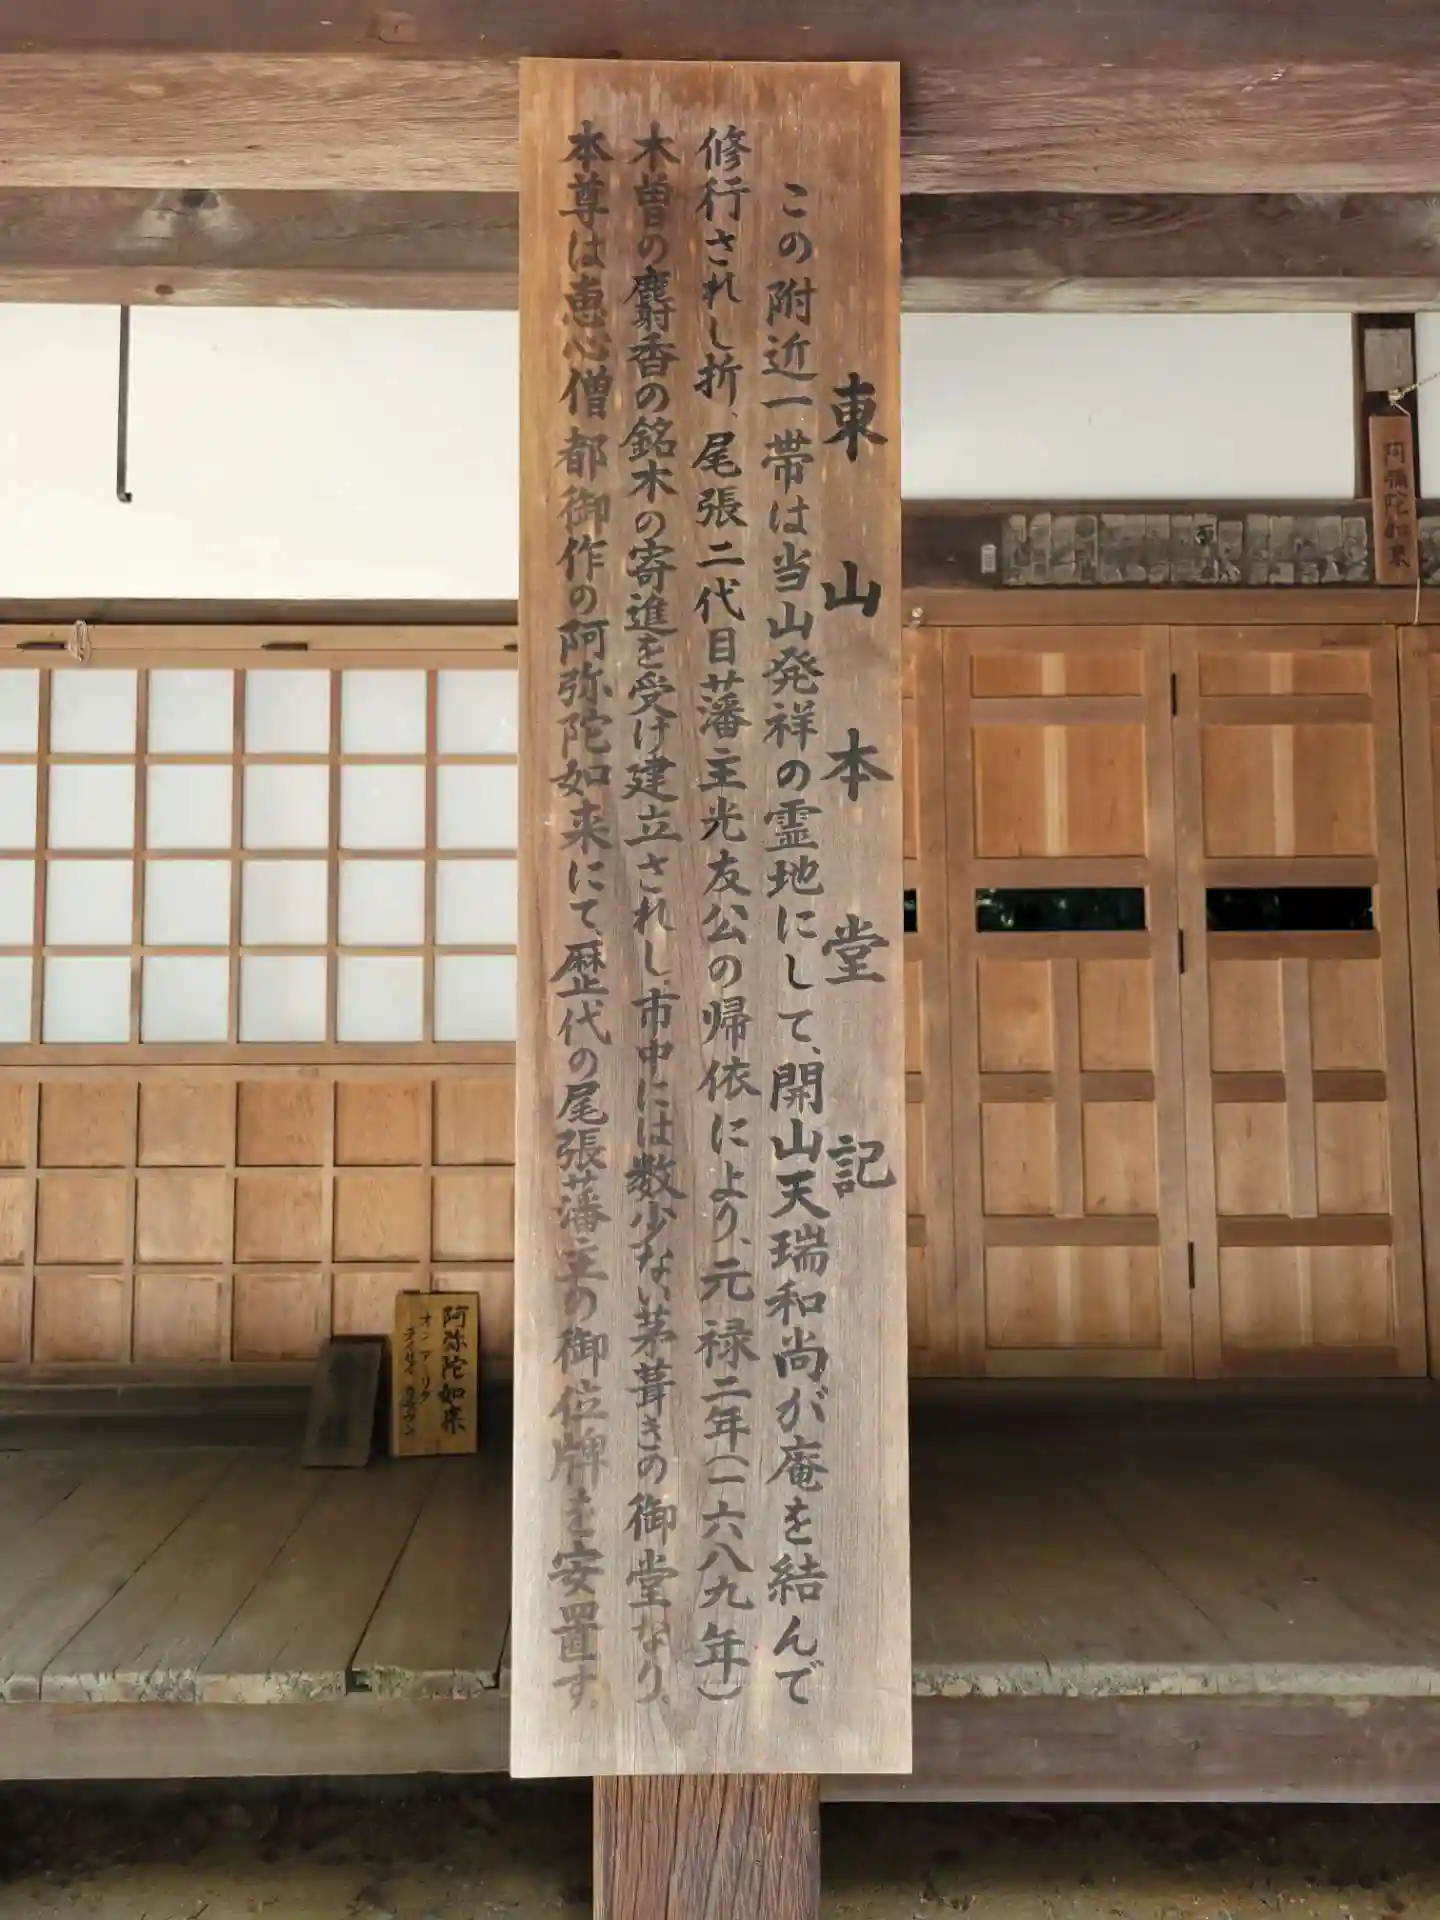 東山本堂記
この附近一帯は当山発祥の霊地にして、開山天瑞和尚が庵を結んで
修行されし折、尾張二代目藩主光友公の帰依により、元禄二年(一六八九年)
木曽の麝香の銘木の寄進を受け建立されし、市中には数少ない茅葺きの御堂なり。
本尊は恵心僧都御作の阿弥陀如来にて、歴代の尾張藩主の御位牌を安置す。
阿彌陀如来
阿弥陀如来
オン アーリタ
テイゼイ カラウン